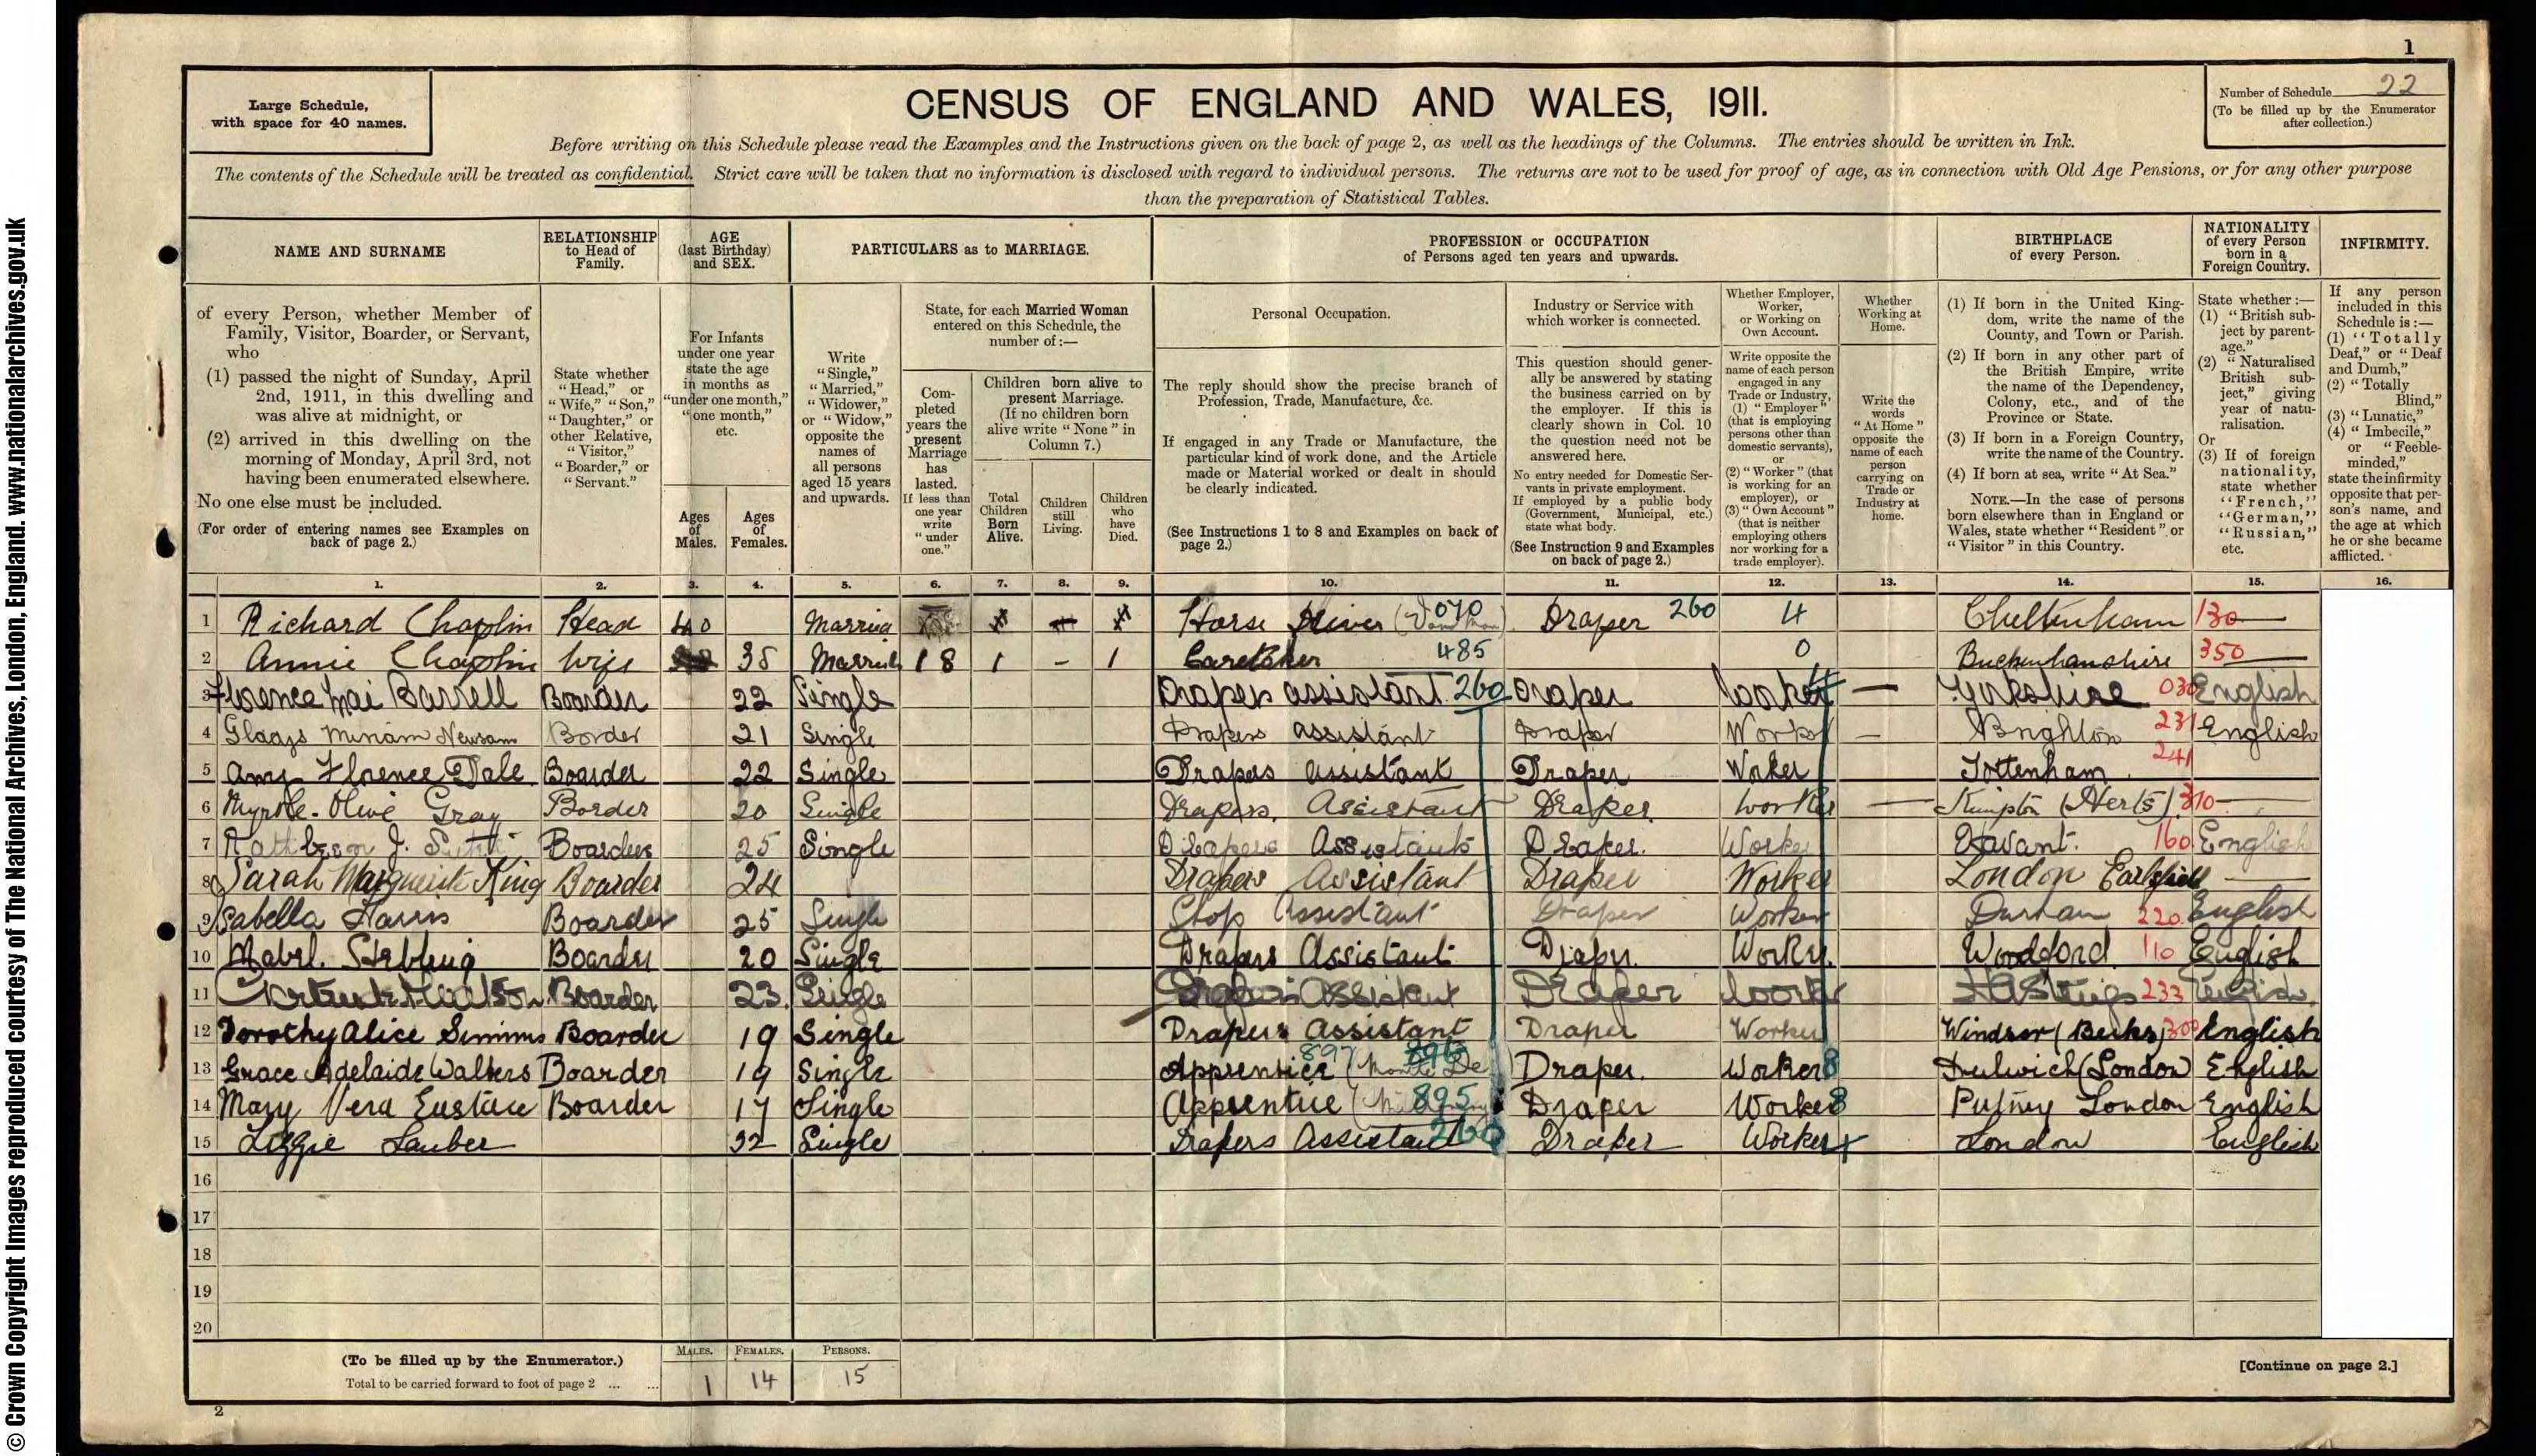 1
Large Schedule,
with space for 40 names.
CENSUS OF ENGLAND AND WALES, 1911.
Number of Schedule 22
(To be filled up by the Enumerator
after collection.)
Before writing on this Schedule please read the Examples and the Instructions given on the back of page 2, as well as the headings of the Columns. The entries should be written in Ink.
The contents of the Schedule will be treated as confidential. Strict care will be taken that no information is disclosed with regard to individual persons. The returns are not to be used for proof of age, as in connection with Old Age Pensions, or for any other purpose
than the preparation of Statistical Tables.
NAME AND SURNAME
of every Person, whether Member of
Family, Visitor, Boarder, or Servant,
who
(1) passed the night of Sunday, April
2nd, 1911, in this dwelling and
was alive at midnight, or
(2) arrived in this dwelling on the
morning of Monday, April 3rd, not
having been enumerated elsewhere.
No one else must be included.
(For order of entering names see Examples on
back of page 2.)
RELATIONSHIP
to Head of
Family.
State whether
"Head," or
"Wife," "Son,"
"Daughter," or
other Relative,
"Visitor,"
"Boarder," or
"Servant."
AGE
(last Birthday)
and SEX.
For Infants
under one year
state the age
in months as
"under one month,"
"one month,"
etc.
Ages
of
Males.
Ages
of
Females.
PARTICULARS as to MARRIAGE.
Write
"Single,"
"Married,"
"Widower,"
or "Widow,"
opposite the
names of
all persons
aged 15 years
and upwards.
State, for each Married Woman
entered on this Schedule, the
number of:—
Com-
pleted
years the
present
Marriage
has
lasted.
If less than
one year
write
"under
one."
Children born alive to
present Marriage.
(If no children born
alive write "None" in
Column 7.)
Total
Children
Born
Alive.
Children
still
Living.
Children
who
have
Died.
PROFESSION or OCCUPATION
of Persons aged ten years and upwards.
Personal Occupation.
The reply should show the precise branch of
Profession, Trade, Manufacture, &c.
If engaged in any Trade or Manufacture, the
particular kind of work done, and the Article
made or Material worked or dealt in should
be clearly indicated.
(See Instructions 1 to 8 and Examples on back of
page 2.)
Industry or Service with
which worker is connected.
This question should gener-
ally be answered by stating
the business carried on by
the employer. If this is
clearly shown in Col. 10
the question need not be
answered here.
No entry needed for Domestic Ser-
vants in private employment.
If employed by a public body
(Government, Municipal, etc.)
state what body.
(See Instruction 9 and Examples
on back of page 2.)
Whether Employer,
Worker,
or Working on
Own Account.
Write opposite the
name of each person
engaged in any
Trade or Industry,
(1) "Employer"
(that is employing
persons other than
domestic servants),
or
(2) "Worker" (that
is working for an
employer), or
(3) "Own Account"
(that is neither
employing others
nor working for a
trade employer).
Whether
Working at
Home.
Write the
words
"At Home"
opposite the
name of each
person
carrying on
Trade or
Industry at
home.
BIRTHPLACE
of every Person.
(1) If born in the United King-
dom, write the name of the
County, and Town or Parish.
(2) If born in any other part of
the British Empire, write
the name of the Dependency,
Colony, etc., and of the
Province or State.
(3) If born in a Foreign Country,
write the name of the Country.
(4) If born at sea, write "At Sea."
NOTE.—In the case of persons
born elsewhere than in England or
Wales, state whether "Resident" or
"Visitor" in this Country.
NATIONALITY
of every Person
born in a
Foreign Country.
State whether:—
(1) "British sub-
ject by parent-
age."
(2) "Naturalised
British sub-
ject," giving
year of natu-
ralisation.
Or
(3) If of foreign
nationality,
state whether
"French,"
"German,"
"Russian,"
etc.
INFIRMITY.
If any person
included in this
Schedule is:—
(1) "Totally
Deaf," or "Deaf
and Dumb,"
(2) "Totally
Blind,"
(3) "Lunatic,"
(4) "Imbecile,"
or "Feeble-
minded,"
state the infirmity
opposite that per-
son's name, and
the age at which
he or she became
afflicted.
1. 2. 3. 4. 5. 6. 7. 8. 9. 10. 11. 12. 13. 14. 15. 16.
1 Richard Chaplin Head 40 Married Horse Driver 070 Draper 260 4 Cheltenham 130
2 Annie Chaplin Wife 38 Married 18 1 – 1 Caretaker 485 0 Buckenhamshire 350
3 Florence Mai Barrell Boarder 22 Single Drapers assistant 260 Draper Worker — Yorkshire 030 English
4 Gladys Miriam Newsam Border 21 Single Drapers assistant Draper Worker — Brighton 231 English
5 Amy Florence Dale Boarder 22 Single Drapers assistant Draper Worker Tottenham 241
6 Myrtle Olive Gray Border 20 Single Drapers Assistant Draper Worker — Kimpton (Herts) 310
7 J. Boarder 25 Single Drapers Assistant Draper. Worker Havant. 160 English
8 Sarah Marguerite King Boarder 24 Drapers Assistant Draper Worker London Earlsfield —
9 Isabella Harris Boarder 25 Single Shop Assistant Draper Worker Durham 220 English
10 Mabel Stebbing Boarder 20 Single Drapers Assistant Draper. Worker. Woodford 110 English
11 Gertrude Boarder 23 Single Assistant Draper Worker Hastings 233 English
12 Dorothy Alice Simms Boarder 19 Single Drapers Assistant Draper Worker Windsor (Berks) 300 English
13 Grace Adelaide Walters Boarder 19 Single Apprentice 897 Draper. Worker 8 Dulwich (London) English
14 Mary Vera Eustace Boarder 17 Single Apprentice 895 Draper Worker 8 Putney London English
15 Lizzie Lauber 32 Single Drapers Assistant 260 Draper Worker London English
16
17
18
19
20
(To be filled up by the Enumerator.)
Total to be carried forward to foot of page 2 ... ...
MALES. FEMALES. PERSONS.
1 14 15
[Continue on page 2.]
2
© Crown Copyright Images reproduced courtesy of The National Archives, London, England. www.nationalarchives.gov.uk